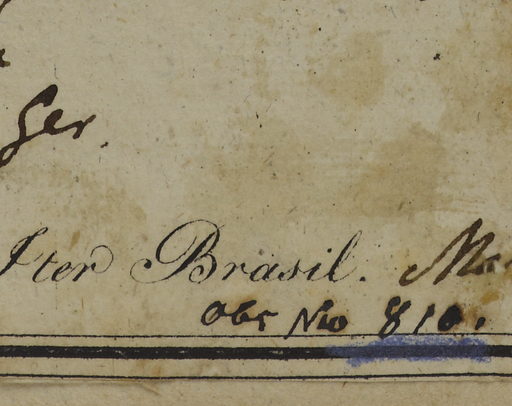 Ger.
Iter Brasil.
Obs No 810.